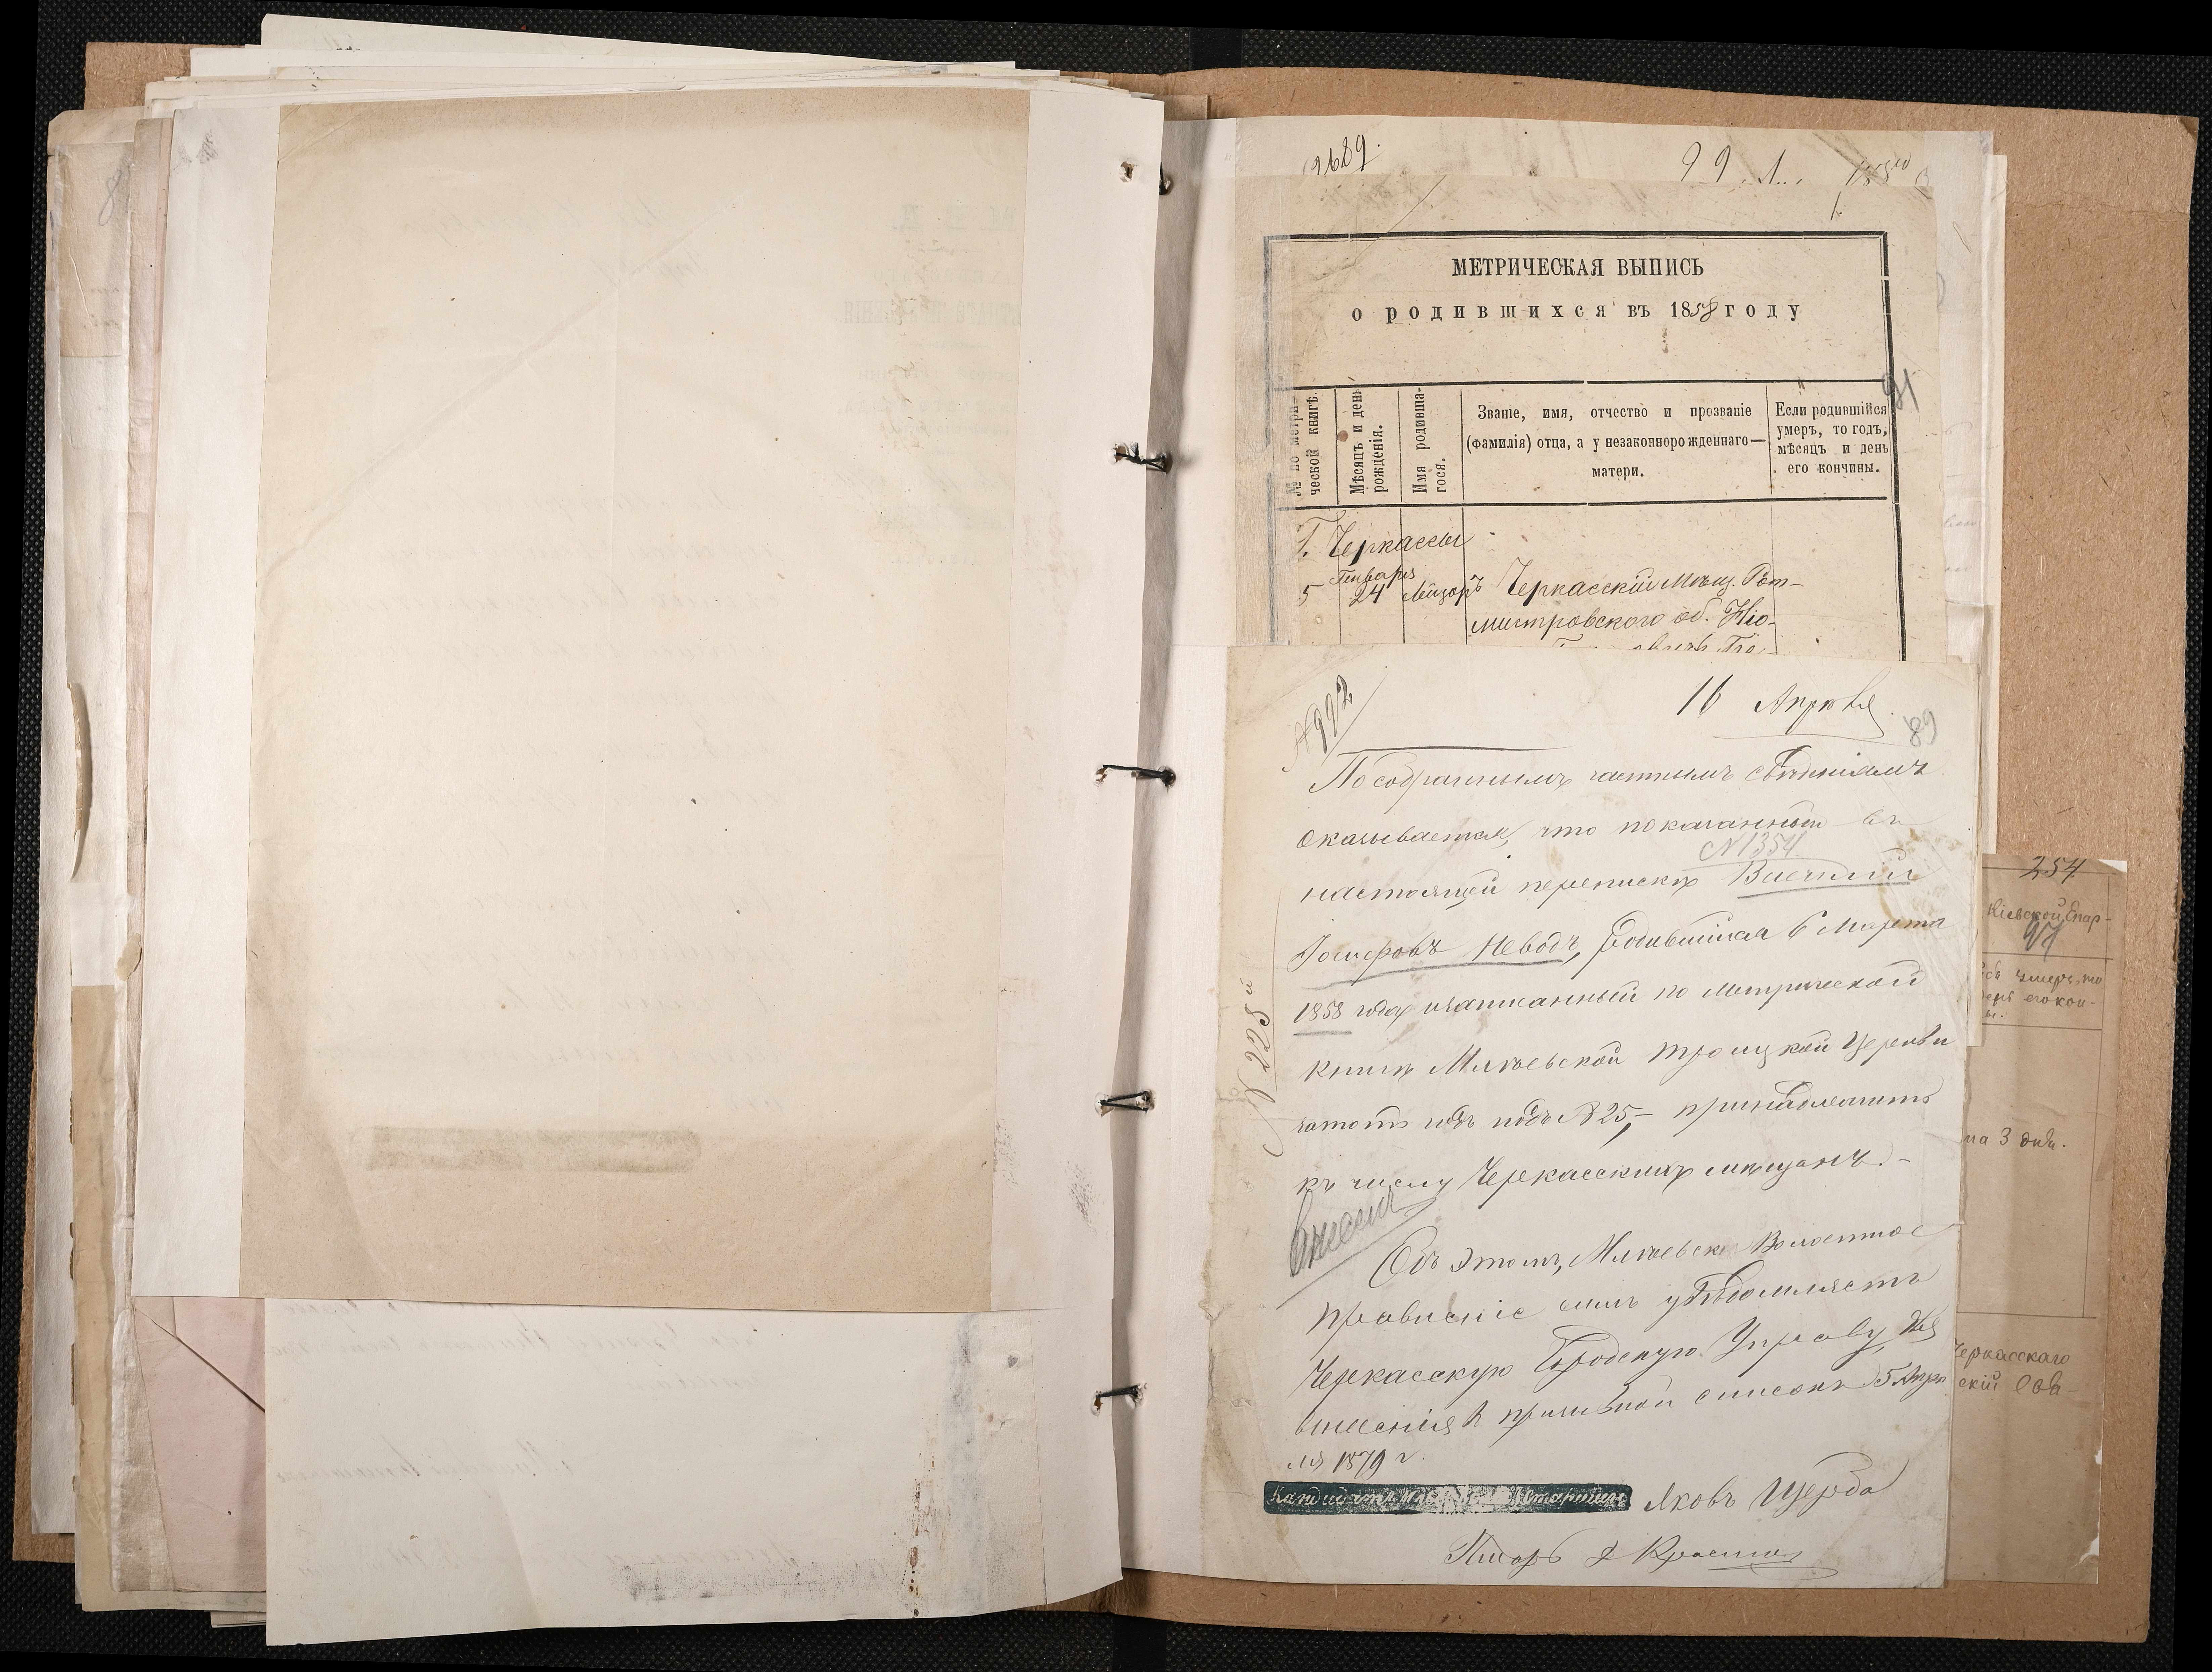 2689.
99
МЕТРИЧЕСКАЯ ВЫПИСЬ
о родившихся въ 1858 году
91
№ по метри-
ческой книгѣ.
Мѣсяцъ и день
рожденія.
Имя родивша-
гося.
Званіе, имя, отчество и прозваніе
(фамилія) отца, а у незаконнорожденнаго—
матери.
Если родившійся
умеръ, то годъ,
мѣсяцъ и день
его кончины.
Г. Черкассы
5 Генваря 24 Лейзоръ Черкасскій Мѣщ. Рот-
мистровского об.
№992
16 Апрѣля
89
По собраннымъ частнымъ свѣдѣніямъ
оказывается, что показанный въ
№1354
настоящей перепискѣ Василій
Іосифовъ Неводъ, родившійся 6 Марта
1858 года и записанный по метрической
книгѣ Млѣевской Троицкой Церкви
затотъ годъ подъ №25, принадлежитъ
къ числу Черкасскихъ мѣщанъ.-
Внесенъ
Объ этомъ, Млѣевск Волостное
правленіе симъ увѣдомляетъ
Черкасскую Городскую Управу, для
внесенія в призывной списокъ 15 Апрѣ
ля 1879 г.
Кандидатъ Старшины Яковъ Щерба
Писарь
№ 2258
254
Кіевской Епар-
97
умеръ, то
его кон-
на 3 дня.
Черкасскаго